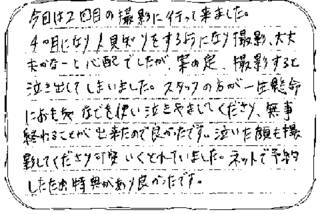 今日は2回目の撮影に行って来ました。
4ヶ月になり人見知りをするようになり撮影、大丈
夫かなーと心配でしたが、案の定、撮影すると
泣き出してしまいました。スタッフの方が一生懸命
におもちゃなどを使い泣きやましてくださり、無事
終わることが出来たので良かったです。泣いた顔も撮
影してくださり可愛いくとれていました。ネットで予約
したため特典があり良かったです。